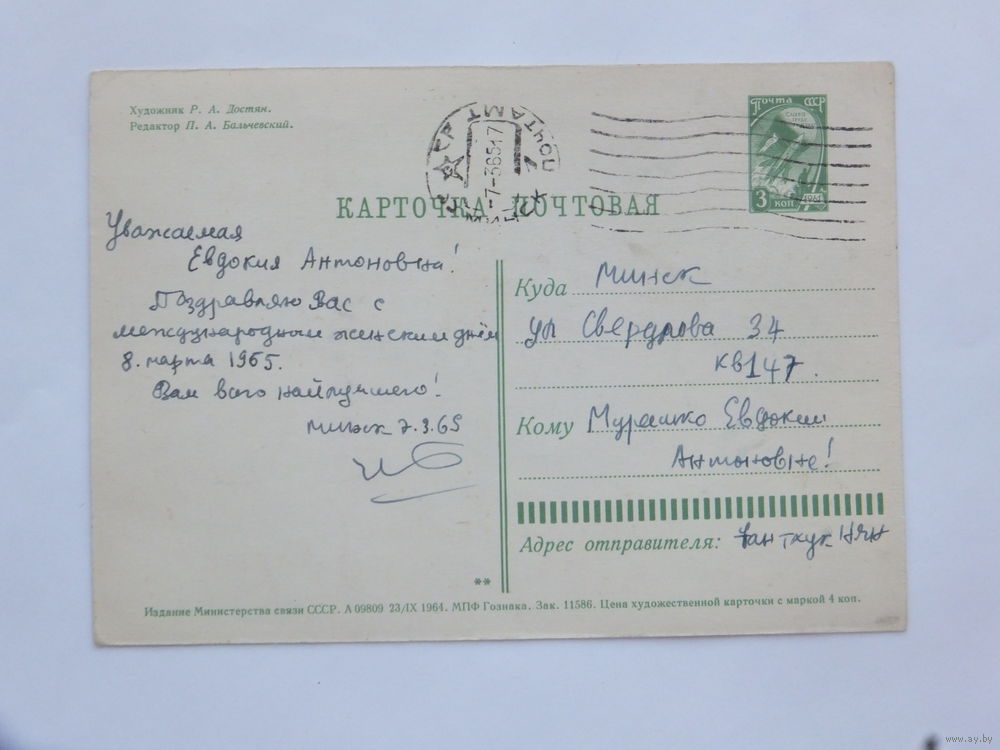 Художник Р. А. Достян.
Редактор П. А. Бальчевский.
ПОЧТАМТ
-7-36517
Почта СССР
СЛАВА ТРУДУ
3 КОП
1961
КАРТОЧКА ПОЧТОВАЯ
Уважаемая
Евдокия Антоновна!
Поздравляю Вас с
международным женским днём
8. марта 1965.
Вам всего найлучшего!
Минск 7.3.65
Куда Минск
ул Свердлова 34
кв147.
Кому Мурашко Евдокии
Антоновне!
Адрес отправителя:
**
Издание Министерства связи СССР. А 09809 23/IX 1964. МПФ Гознака. Зак. 11586. Цена художественной карточки с маркой 4 коп.
www.ay.by